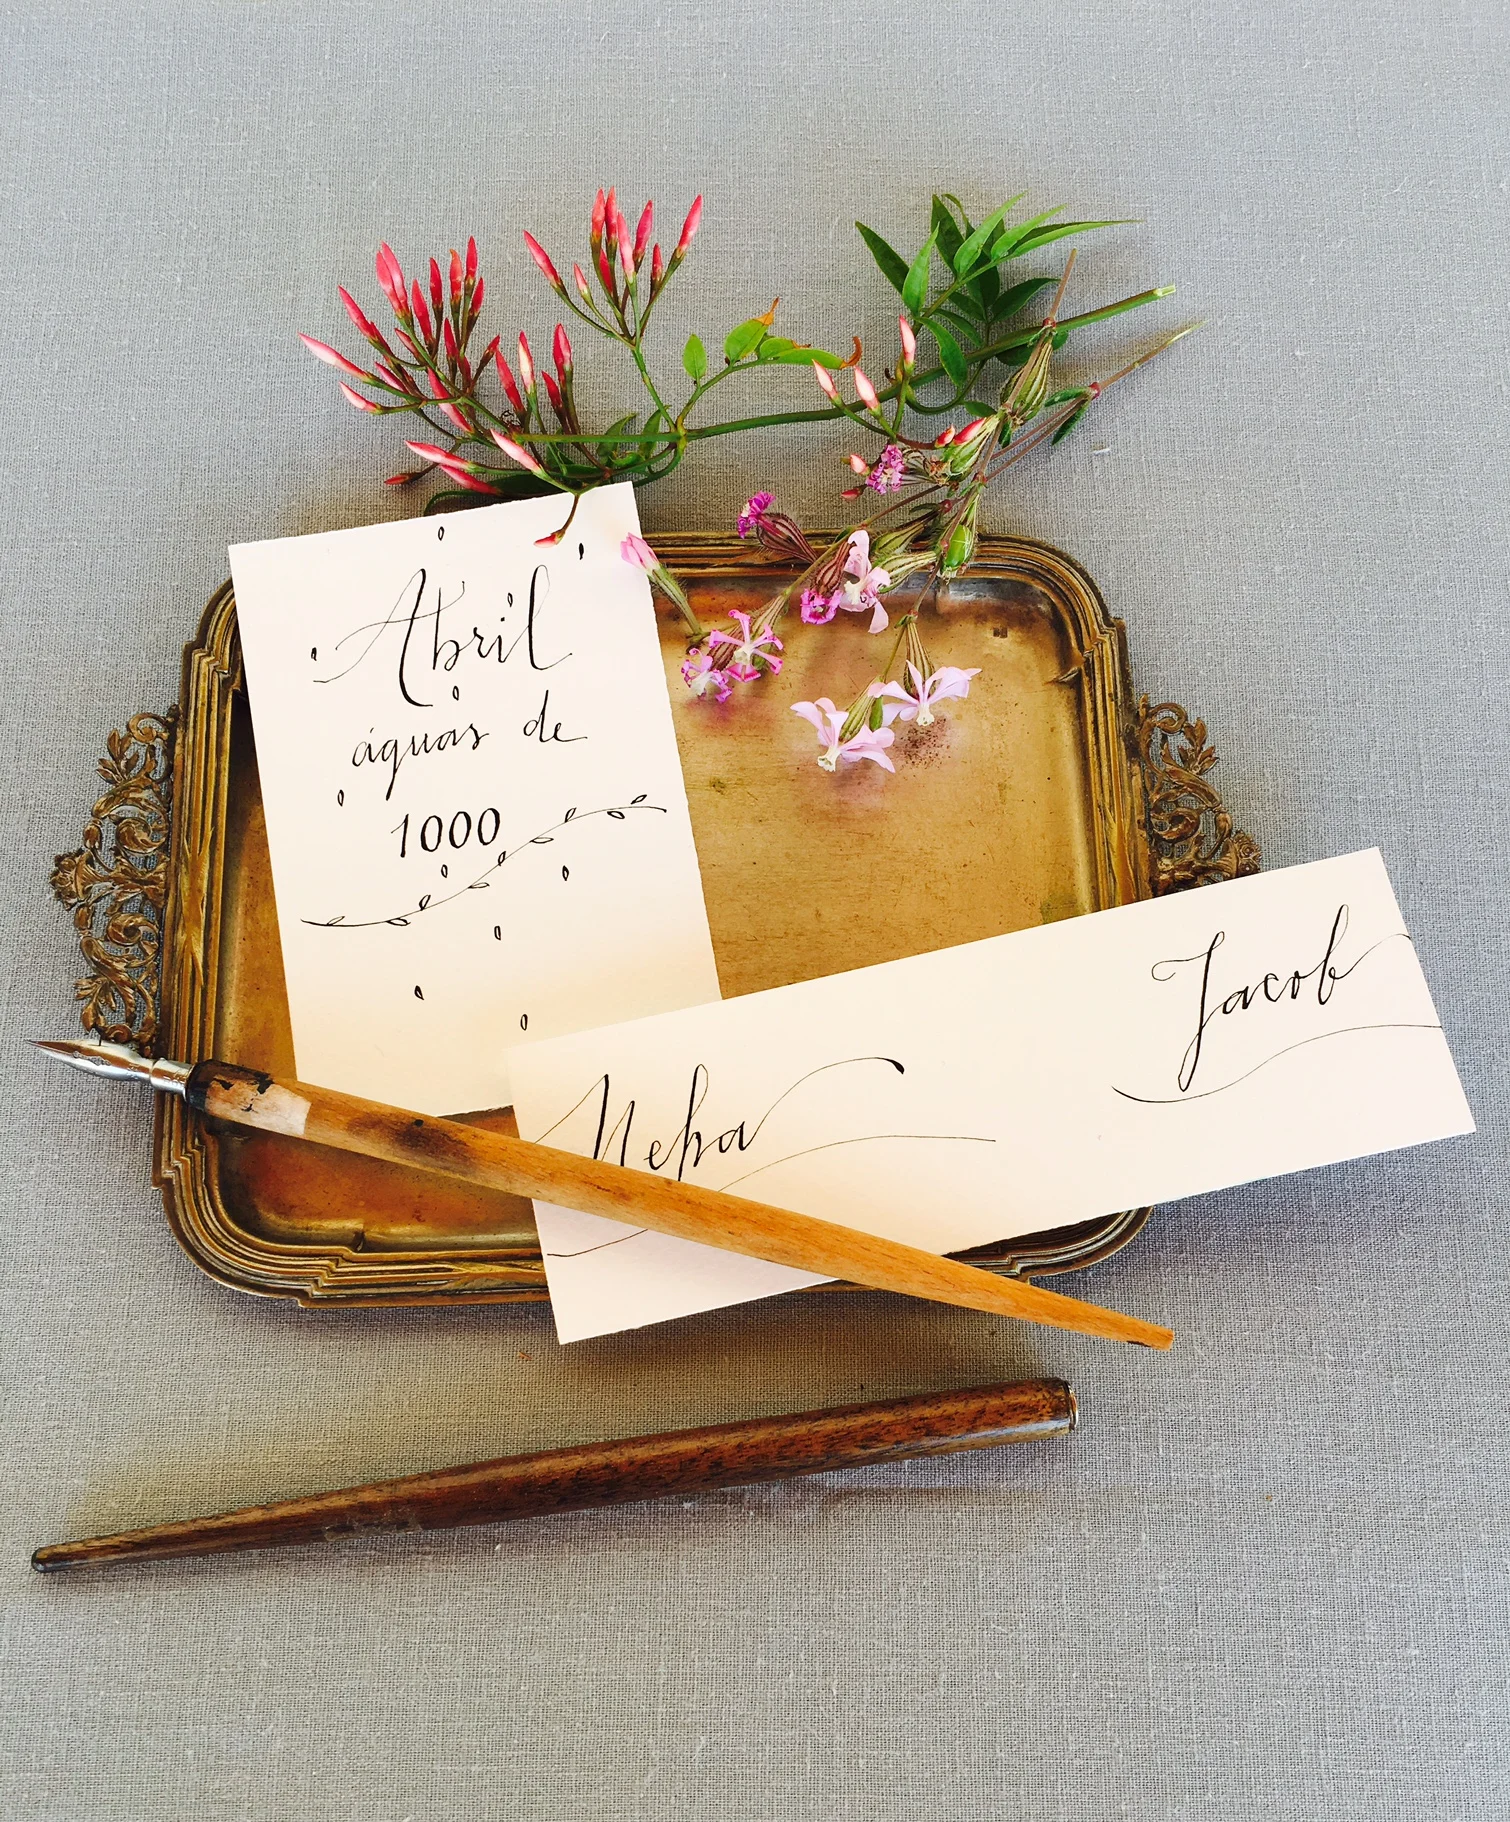 Abril
águas de
1000
Neha
Jacob